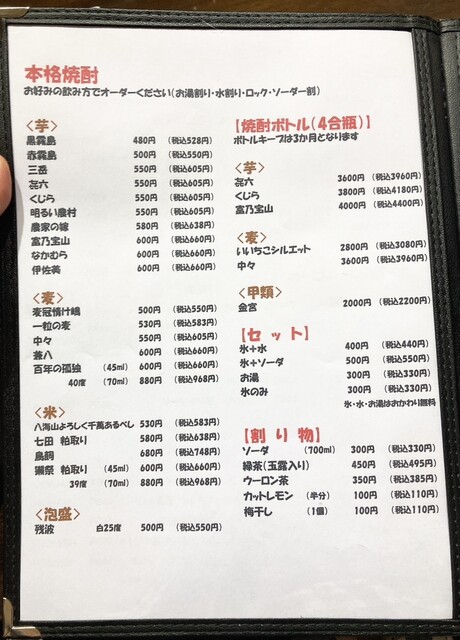 本格焼酎
お好みの飲み方でオーダーください(お湯割り・水割り・ロック・ソーダー割)
〈芋〉
黒霧島 480円 (税込528円)
赤霧島 500円 (税込550円)
三岳 550円 (税込605円)
㐂六 550円 (税込605円)
くじら 550円 (税込605円)
明るい農村 550円 (税込605円)
農家の嫁 580円 (税込638円)
富乃宝山 600円 (税込660円)
なかむら 600円 (税込660円)
伊佐美 600円 (税込660円)
〈麦〉
麦冠情け嶋 500円 (税込550円)
一粒の麦 530円 (税込583円)
中々 550円 (税込605円)
兼八 600円 (税込660円)
百年の孤独 (45ml) 600円 (税込660円)
40度 (70ml) 880円 (税込968円)
〈米〉
八海山よろしく千萬あるべし 530円 (税込583円)
七田 粕取り 580円 (税込638円)
鳥飼 680円 (税込748円)
獺祭 粕取り (45ml) 600円 (税込660円)
39度 (70ml) 880円 (税込968円)
〈泡盛〉
残波 白25度 500円 (税込550円)
【焼酎ボトル(4合瓶)】
ボトルキープは3か月となります
〈芋〉
㐂六 3600円 (税込3960円)
くじら 3800円 (税込4180円)
富乃宝山 4000円 (税込4400円)
〈麦〉
いいちこシルエット 2800円 (税込3080円)
中々 3600円 (税込3960円)
〈甲類〉
金宮 2000円 (税込2200円)
【セット】
氷+水 400円 (税込440円)
氷+ソーダ 500円 (税込550円)
お湯 300円 (税込330円)
氷のみ 300円 (税込330円)
氷・水・お湯はおかわり無料
【割り物】
ソーダ (700ml) 300円 (税込330円)
緑茶(玉露入り) 450円 (税込495円)
ウーロン茶 350円 (税込385円)
カットレモン (半分) 100円 (税込110円)
梅干し (1個) 100円 (税込110円)